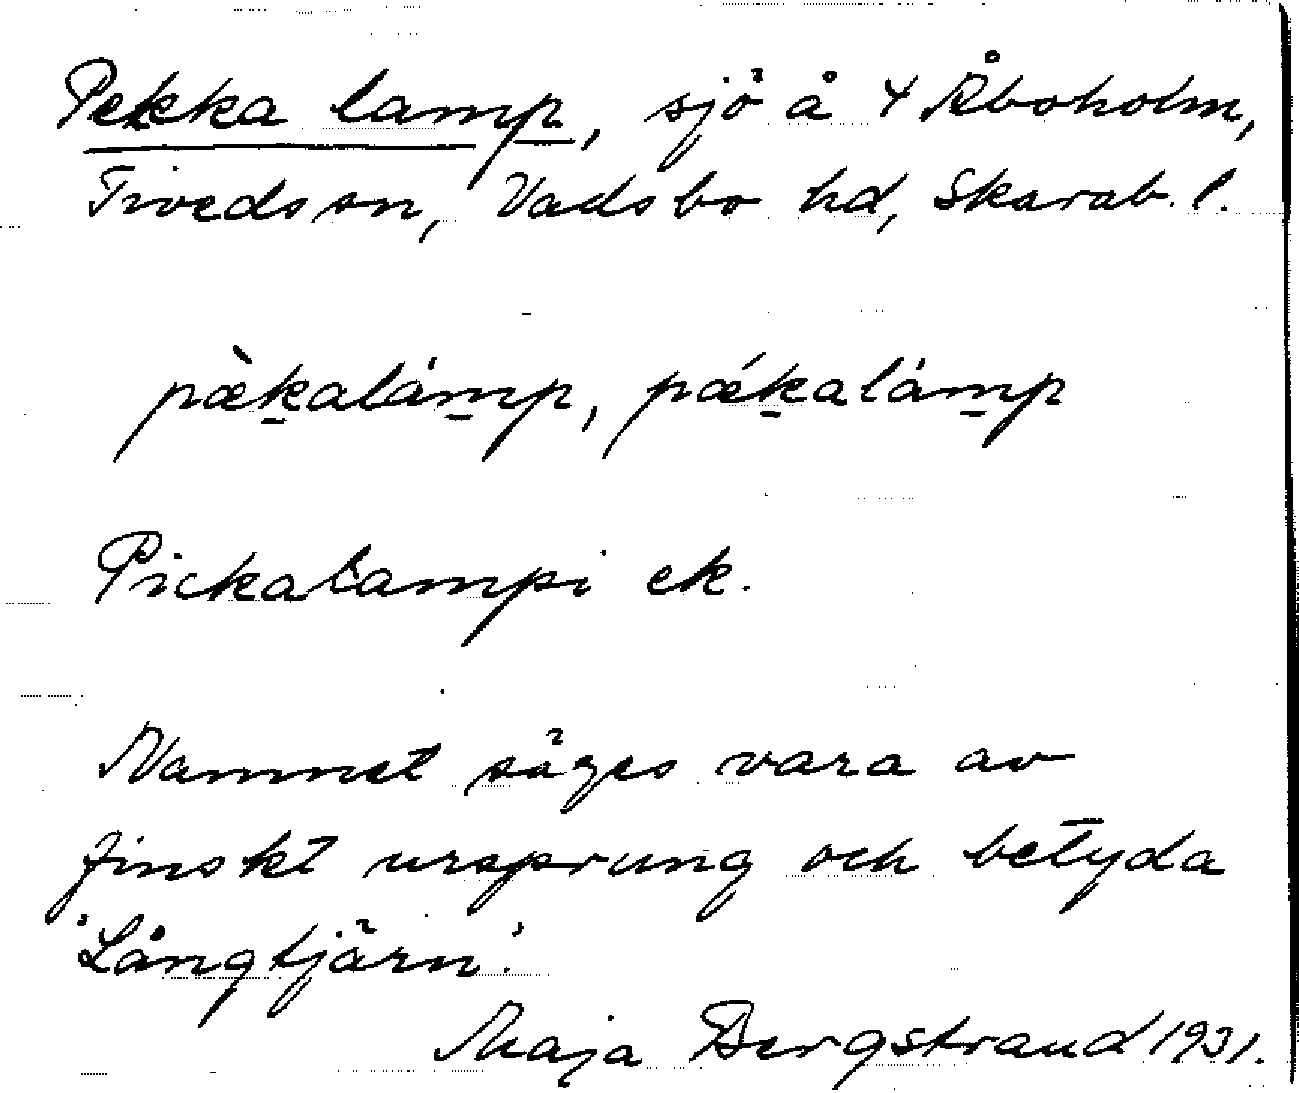 Pekka lamp, sjö å 4 Åboholm,
Tiveds sn, Vadsbo hd, Skarab. l.
pæ̀ka̱lámp, pǽka̱lámp
Pickalampi ek.
Namnet säges vara av
finskt ursprung och betyda
'Långtjärn'.
Maja Bergstrand 1931.